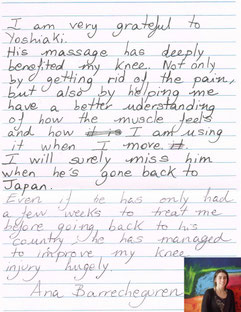 I am very grateful to
Yoshiaki.
His massage has deeply
benefited my knee. Not only
by getting rid of the pain,
but also by helping me
have a better understanding
of how the muscle feels
and how I am using
it when I move it.
I will surely miss him
when he's gone back to
Japan.
Even if he has only had
a few weeks to treat me
before going back to his
country he has managed
to improve my knee
injury hugely.
Ana Barrecheguren